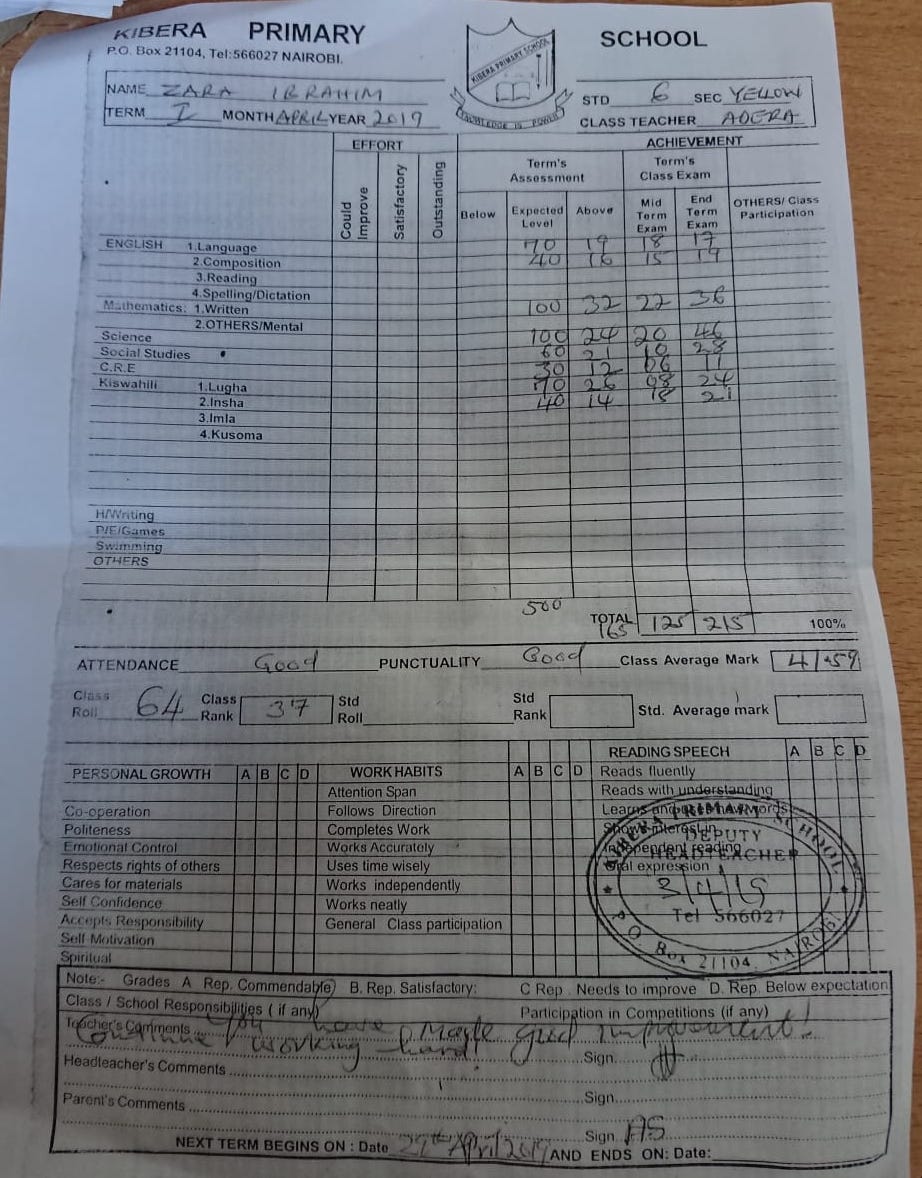 KIBERA PRIMARY SCHOOL
P.O. Box 21104, Tel:566027 NAIROBI.
KIBERA PRIMARY SCHOOL
KNOWLEDGE IS POWER
NAME ZARA IBRAHIM STD 6 SEC YELLOW
TERM I MONTH APRIL YEAR 2019 CLASS TEACHER ADERA
EFFORT ACHIEVEMENT
Could Improve Satisfactory Outstanding
Term's Assessment Term's Class Exam
Below Expected Level Above Mid Term Exam End Term Exam OTHERS/ Class Participation
ENGLISH 1.Language 70 19 18 17
2.Composition 40 16 15 19
3.Reading
4.Spelling/Dictation
Mathematics: 1.Written 100 32 22 36
2.OTHERS/Mental
Science 100 24 20 46
Social Studies 60 21 10 28
C.R.E 30 12 06 11
Kiswahili 1.Lugha 70 26 24
2.Insha 40 14 18 21
3.Imla
4.Kusoma
H/Writing
P/E/Games
Swimming
OTHERS
500
TOTAL 165 125 215 100%
ATTENDANCE Good PUNCTUALITY Good Class Average Mark 41.59
Class Roll 64 Class Rank 37 Std Roll Std Rank Std. Average mark
READING SPEECH A B C D
PERSONAL GROWTH A B C D WORK HABITS A B C D Reads fluently
Attention Span Reads with understanding
Co-operation Follows Direction Learns and use new words
Politeness Completes Work Shows interest in
Emotional Control Works Accurately Independent reading
Respects rights of others Uses time wisely Oral expression
Cares for materials Works independently
Self Confidence Works neatly
Accepts Responsibility General Class participation
Self Motivation
Spiritual
KIBERA PRIMARY SCHOOL
DEPUTY
HEADTEACHER
Tel 566027
P.O. Box 21104, NAIROBI
Note:- Grades A Rep. Commendable B. Rep. Satisfactory: C Rep. Needs to improve D. Rep. Below expectation
Class / School Responsibilities ( if any) Participation in Competitions (if any)
Teacher's Comments You have made good improvement!
Continue working hard! Sign.
Headteacher's Comments
Sign.
Parent's Comments
Sign AS
NEXT TERM BEGINS ON : Date 29th April 2019 AND ENDS ON: Date: